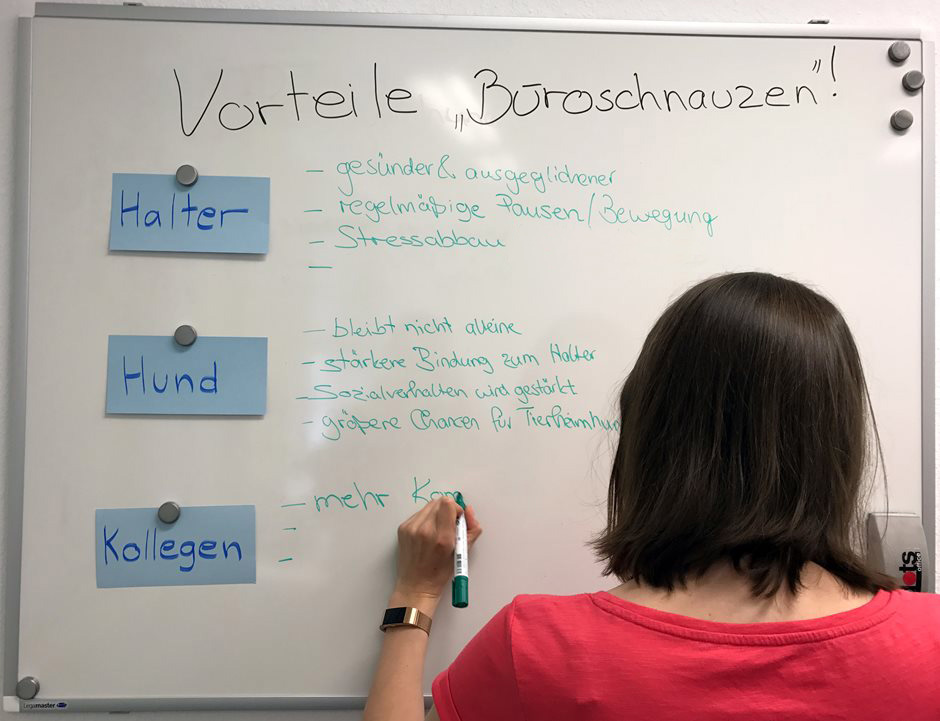 Vorteile „Büroschnauzen"!
Halter
– gesünder & ausgeglichener
– regelmäßige Pausen/Bewegung
– Stressabbau
–
Hund
– bleibt nicht alleine
– stärkere Bindung zum Halter
– Sozialverhalten wird gestärkt
– größere Chancen für Tierheimhun
Kollegen
– mehr Kom
–
–
Legamaster